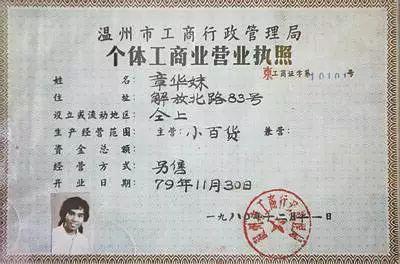 温州市工商行政管理局
个体工商业营业执照
东工商证字第10101号
姓名 章华妹
住址 解放北路83号
设立或流动地区: 仝上
生产经营范围: 主营: 小百货 兼营:
资金总额:
经营方式: 另售
开业日期: 79年11月30日
一九八〇年十二月十一日
温州市工商行政管理局